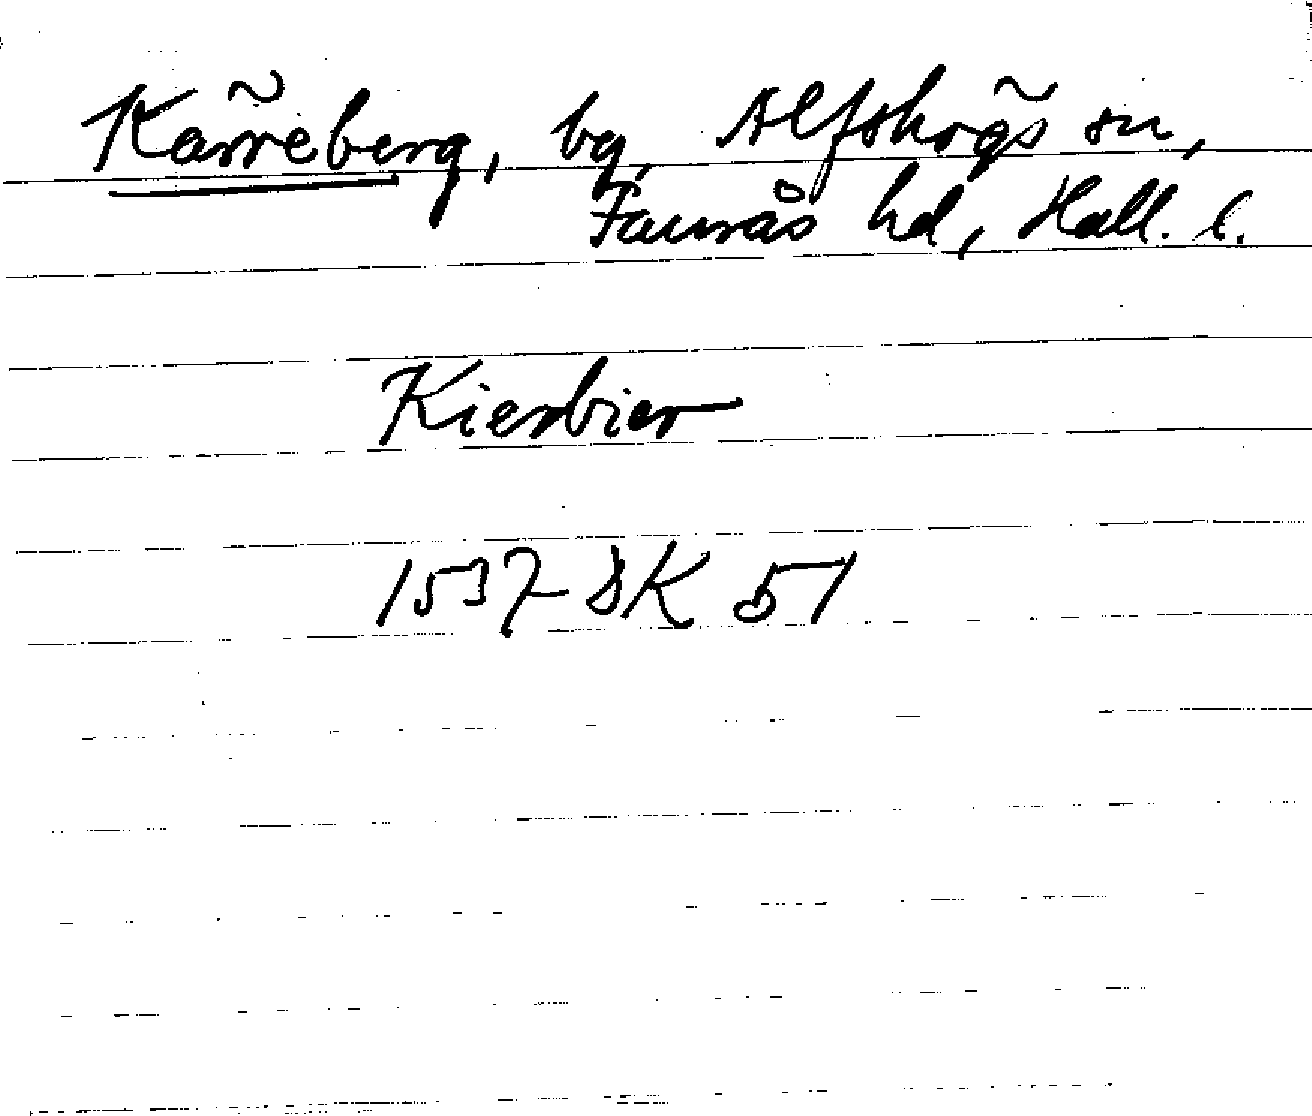 Kärreberg, by, Alfshögs sn,
Faurås hd, Hall. l.
Kierbier
1537 DK 51